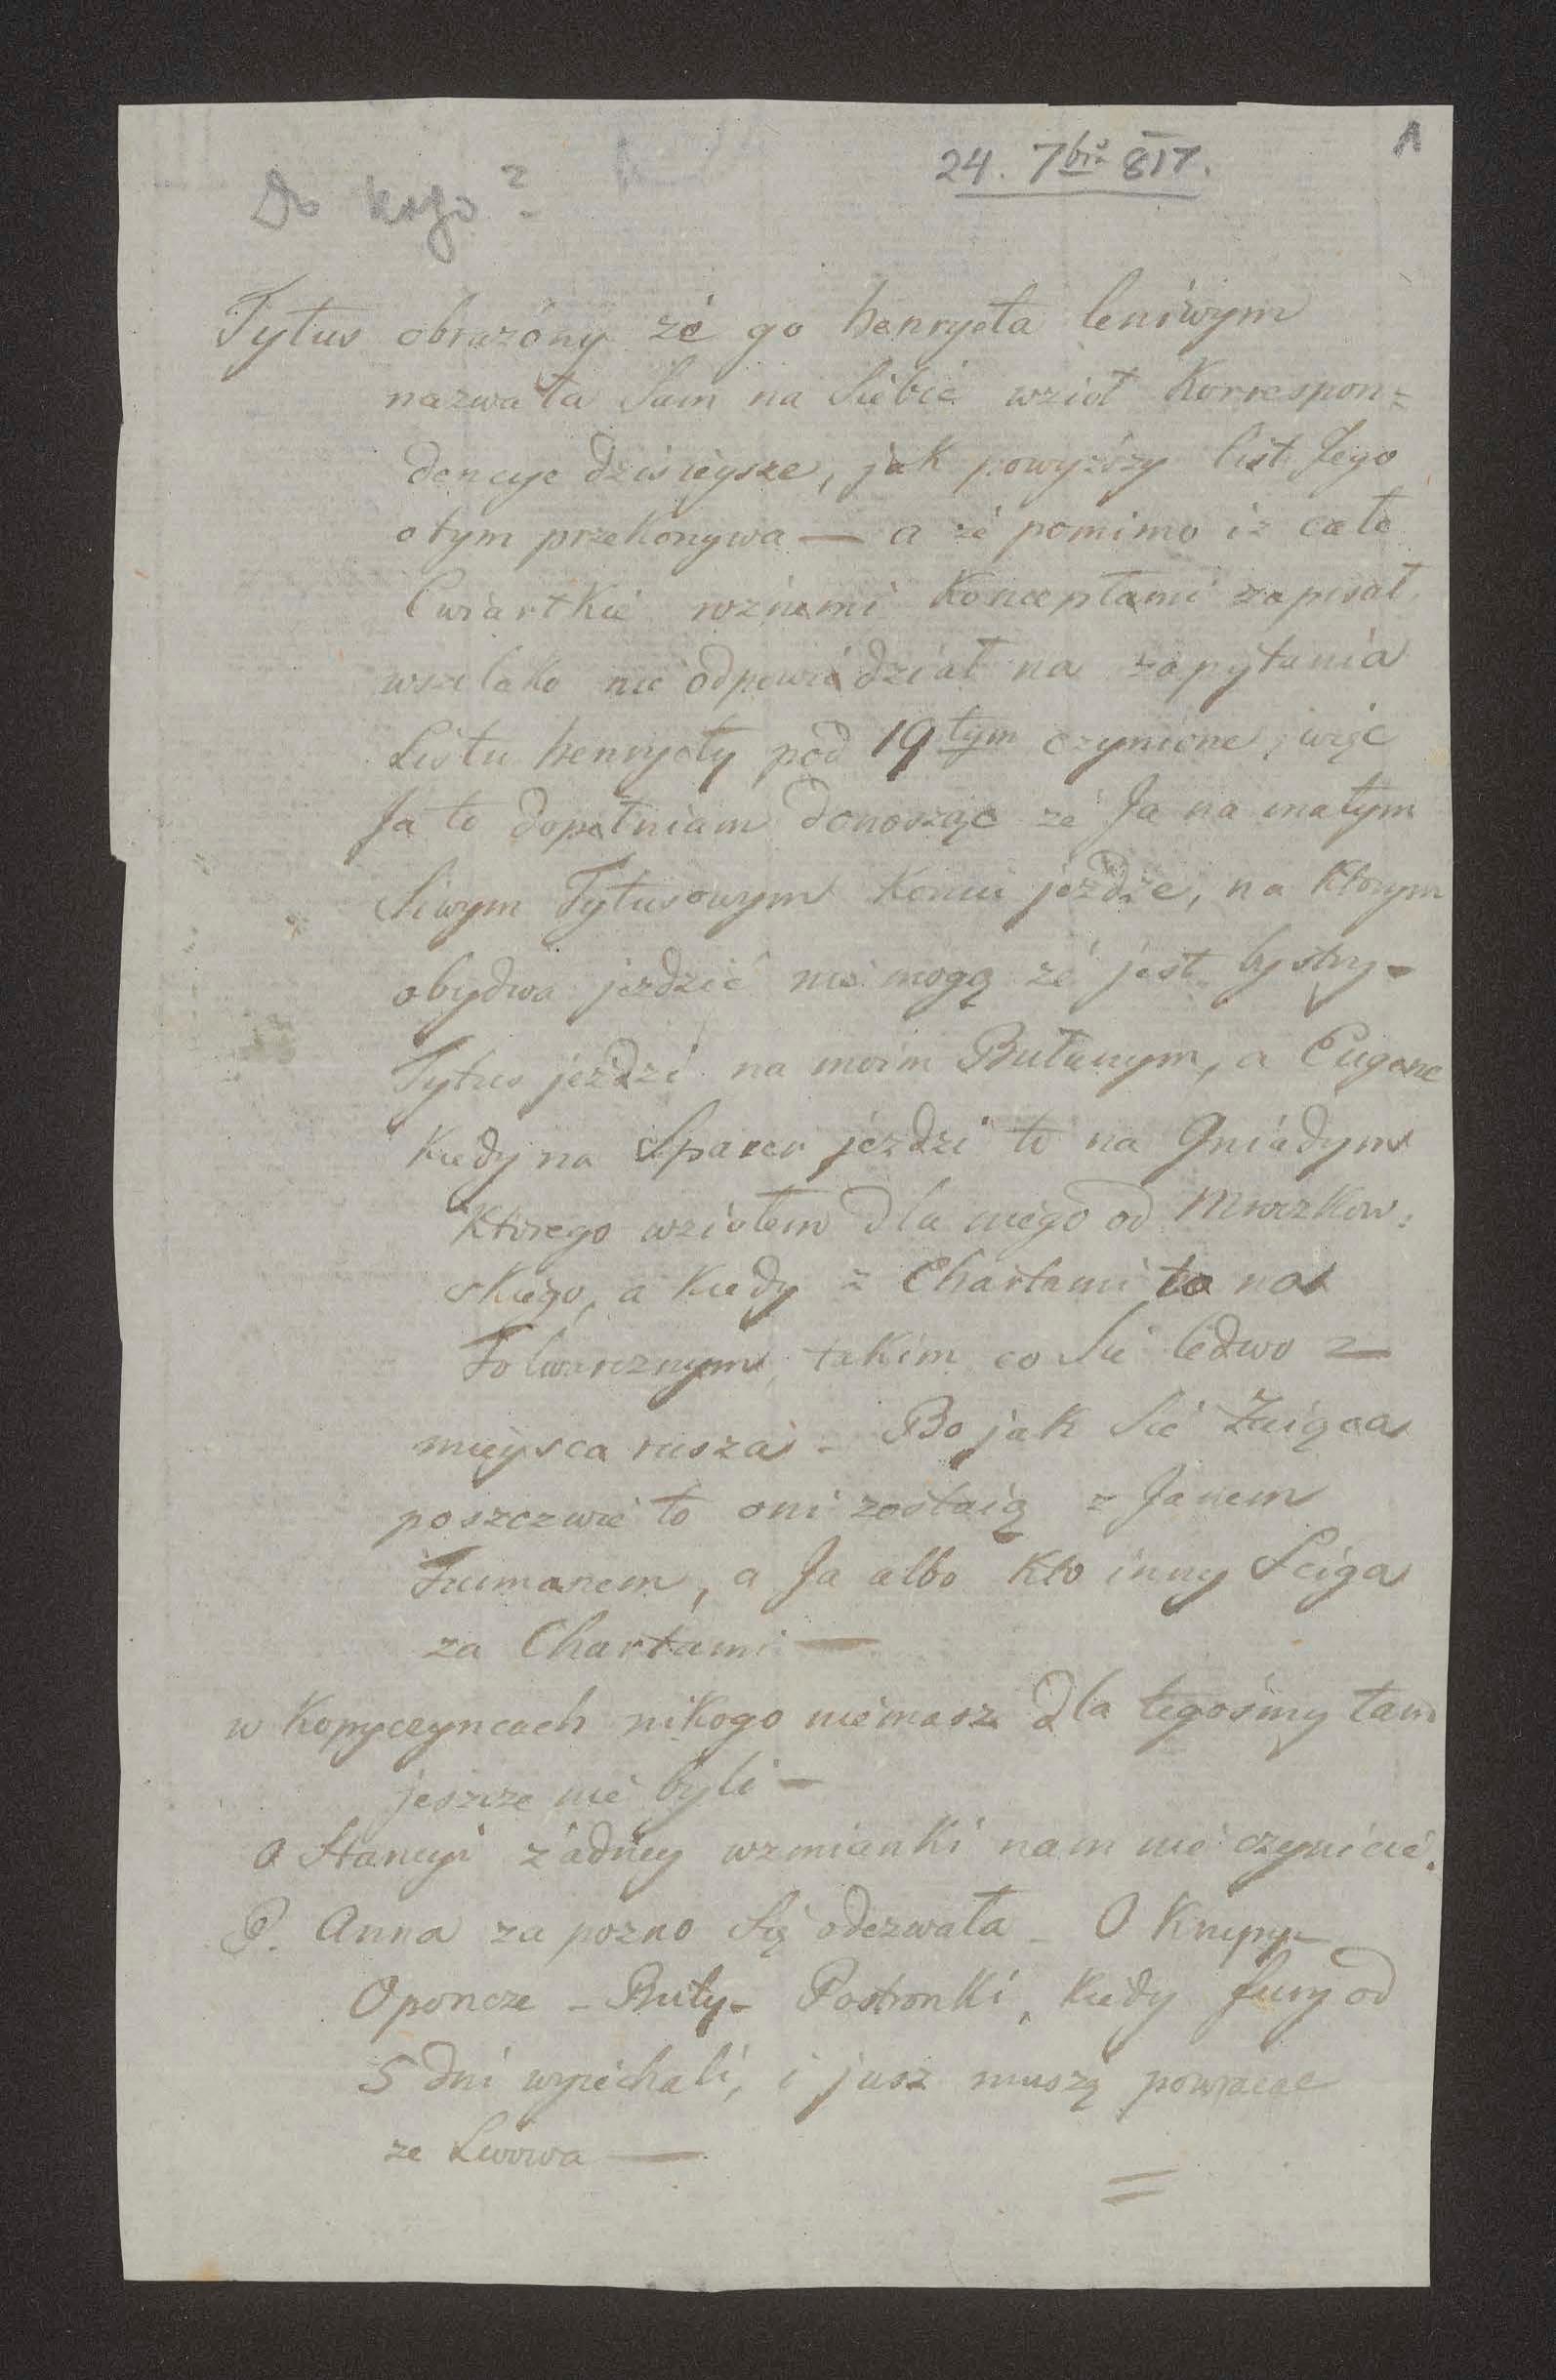 1
24. 7bris 817.
Do kogo?
Tytus obrażony że go henryeta leniwym
nazwała Sam na Siebie wzioł Korrespon=
dencye dzisieysze, jak powyższy list Jego
otym przekonywa — a że pomimo iż całe
Cwiartkie roznemi Konceptami zapisał
wszelako nie odpowiedział na zapytania
Listu henryety pod 19tym czynione, więc
Ja to dopełniam donosząc że Ja na małym
Siwym Tytusowym Koniu jeżdże, na Ktorym
obydwa jezdzić nie mogą że jest bystry –
Tytus jeździ na moim Bułanym, a Eugene
Kiedy na Spacer jezdzi to na Gniadym
Ktorego wziołem dla niego od Mroczkow:
skiego, a Kiedy z Chartami to na
Folwarcznym takim co Sie ledwo z
mieysca rusza – Bo jak Sie Zaiąca
poszczwie to oni zostaią z Janem
Furmanem, a Ja albo Kto inny Sciga
za Chartami —
w Kopyczyncach nikogo niemasz dla tegośmy tam
jeszcze nie byli –
O Stancyi żadney wzmianki nam nie czynicie.
P. Anna za pozno Się odezwała – O Krupy –
Oponcze – Buty – Postronki, Kiedy fury od
5 dni wyiechali, i jusz muszą powracac
ze Lwowa —
=